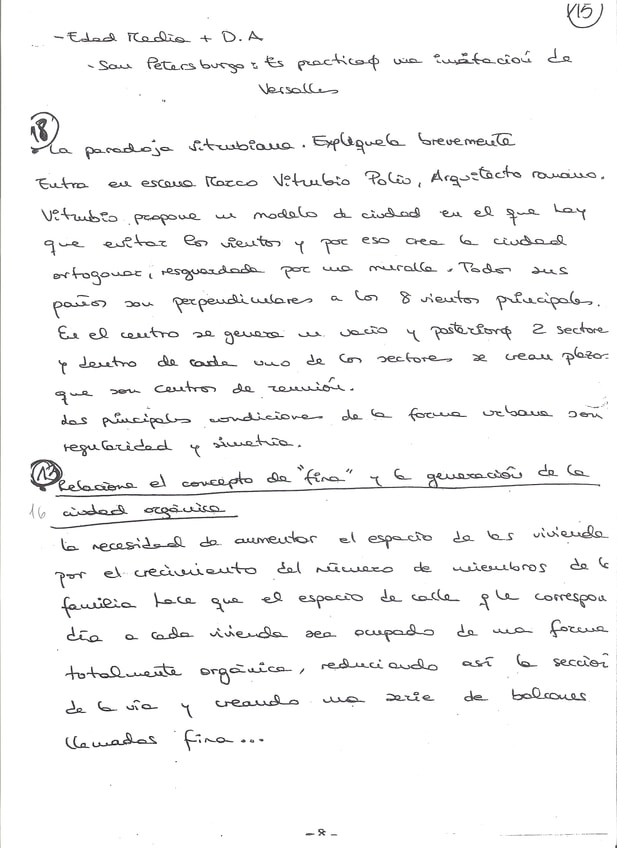 115
- Edad Media + D.A
- San Petersburgo: Es practicaφ una imitación de
Versalles
18
La paradoja vitrubiana. Expliquela brevemente
Entra en escena Marco Vitrubio Polio, Arquitecto romano.
Vitrubio propone un modelo de ciudad en el que hay
que evitar los vientos y por eso crea la ciudad
ortogonal, resguardada por una muralla. Todos sus
paños son perpendiculares a los 8 vientos principales.
En el centro se genera un vacío y posteriorφ 2 sectore
y dentro de cada uno de los sectores se crean plazas
que son centros de reunión.
Las principales condiciones de la forma urbana son
regularidad y simetría.
Relacione el concepto de "fina" y la generación de la
16 ciudad orgánica
La necesidad de aumentar el espacio de las vivienda
por el crecimiento del número de miembros de la
familia hace que el espacio de calle q le correspon
día a cada vivienda sea ocupado de una forma
totalmente orgánica, reduciendo así la sección
de la vía y creando una serie de balcones
llamados fina...
- 8 -